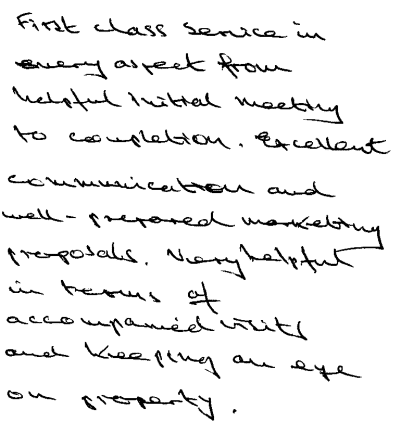 First class service in
every aspect from
helpful initial meeting
to completion. Excellent
communication and
well-prepared marketing
proposals. Very helpful
in terms of
accompanied visits
and keeping an eye
on property.